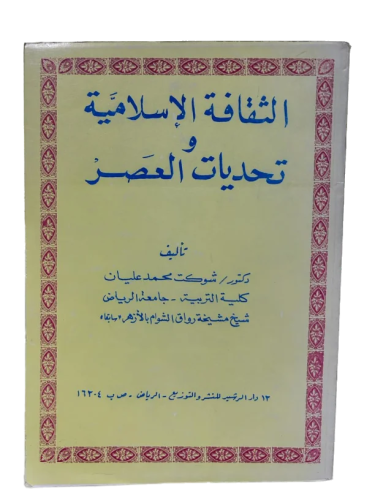 الثقافة الإسلاميَّة
و
تحديات العَصرْ
تأليف
دكتور/ شوكت محمد عليان
كلية التربية - جامعة الرياض
شيخ مشيخة رواق الشوام بالأزهر «سابقا»
دار الرشيد للنشر والتوزيع - الرياض - ص ب ١٦٣٠٤